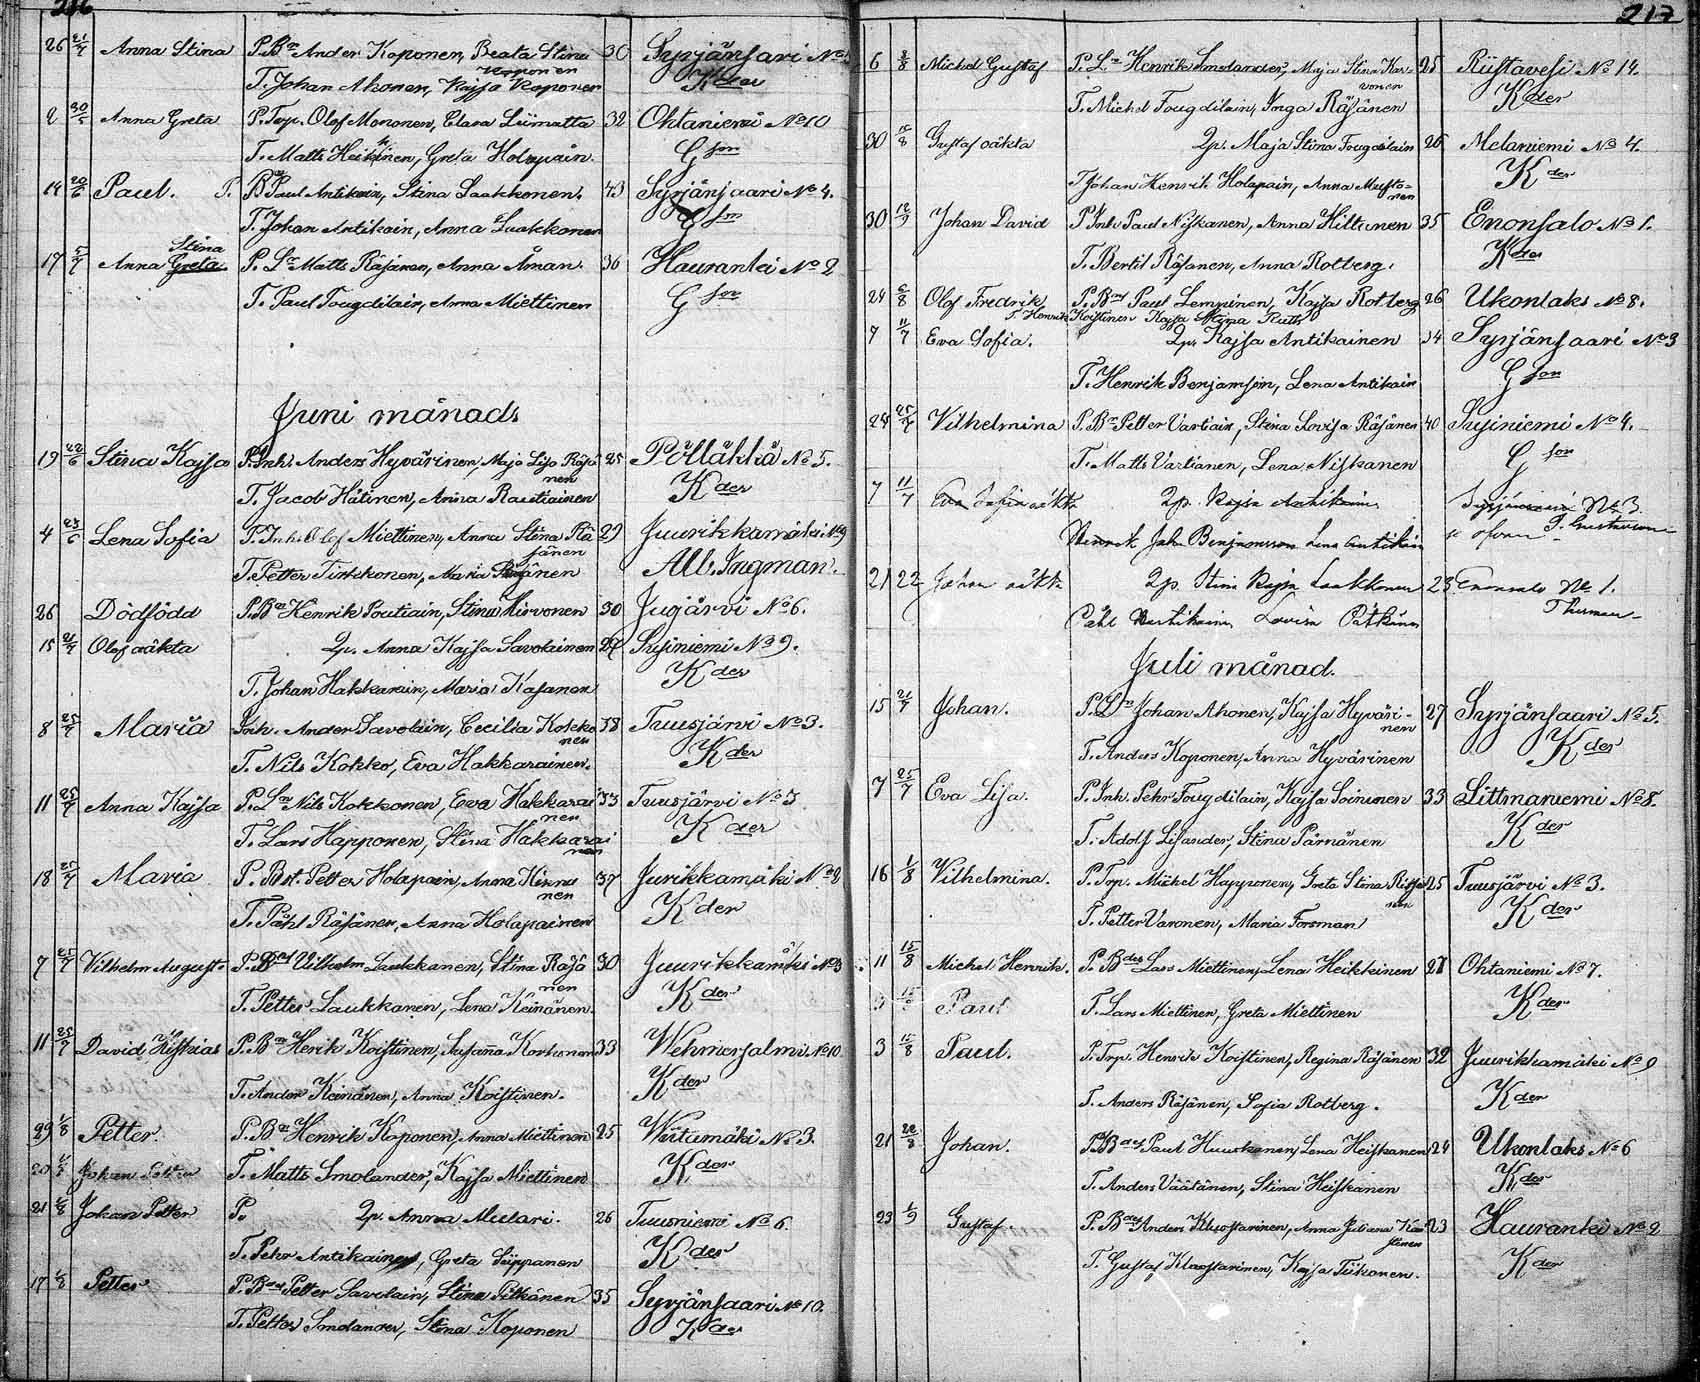 216
26 21/7 Anna Stina P. Bn Ander Koponen, Beata Stina 30 Syrjänsari No
Koponen
T. Johan Ahonen, Kajsa Koponen Kder
2 30/5 Anna Greta P. Trp. Olof Mononen, Clara Liimatta 32 Ohtaniemi No 10
T. Matts Heikinen, Greta Holopain. Gson
14 20/6 Paul. P. Bd Paul Antikain, Stina Laakkonen. 43 Syrjänsaari No 4.
T. Johan Antikain, Anna Laakkonen Gson
Stina
17 5/7 Anna Greta P. Ln Matts Räsänen, Anna Åman. 36 Hauranki No 2
T. Paul Tougdilain, Anna Miettinen Gson
Juni månads
19 22/6 Stina Kajsa P. Inh. Anders Hyvärinen, Maja Lisa Räsä 25 Pölläkkä No 5.
nen
T. Jacob Hätinen, Anna Rautiainen Kder
4 23/6 Lena Sofia P. Inh. Olof Miettinen, Anna Stina Rä 29 Juurikkamäki No 9
sänen
T. Petter Tirkkonen, Maria Räsänen Alb. Ingman.
26 Dödfödd P. Bn Henrik Poutiain, Stina Hirvonen 30 Jugärvi No 6.
15 21/7 Olof oäkta Qp. Anna Kajsa Savolainen 27 Susiniemi No 9.
T. Johan Hakkarain, Maria Kasanen Kder
8 25/7 Maria Inh. Ander Savolain, Cecilia Kokko 38 Tuusjärvi No 3.
nen
T. Nils Kokko, Eva Hakkarainen. Kder
11 25/7 Anna Kajsa P. Ln Nils Kokkonen, Eva Hakkarai 33 Tuusjärvi No 3
nen
T. Lars Happonen, Stina Hakkarai Kder
nen
18 25/7 Maria P. Bst. Petter Holapain, Anna Hinnu 37 Jurikkamäki No 2
nen
T. Påhl Räsänen, Anna Holapainen Kder
7 25/7 Vilhelm August P. Bd Vilhelm Laukkanen, Stina Räsä 30 Juurikkamäki No 3
nen
T. Petter Laukkanen, Lena Keinänen. Kder
11 25/7 David Hiskias P. Bn Herik Koistinen, Susanna Korhonen 33 Wehmersalmi No 10
T. Ander Keinänen, Anna Koistinen. Kder
29 1/8 Petter. P. Bn Henrik Koponen, Anna Miettinen 25 Wiitamäki No 3.
20 Johan T. Matts Smolander, Kajsa Miettinen Kder
21 1/8 Johan Petter P. Qp. Anna Mulari. 26 Tuusniemi No 6.
T. Pehr Antikainen, Greta Seppanen Kder
17 1/8 Petter P. Bd Petter Savolain, Stina Pitkänen 35 Syrjänsaari No 10.
T. Petter Smolander, Stena Koponen Kder
217
6 8/8 Michel Gustaf P. Ln Henrik Smolander, Maja Stina Kar- 25 Riistavesi No 14.
vonen
T. Michel Tougdilain, Inga Räsänen Kder
30 15/8 Gustaf oäkta Qp. Maja Stina Tougdilain 26 Melaniemi No 4.
T. Johan Henrik Holapain, Anna Musto- Kder
nen
30 12/9 Johan David P. Inh Paul Niskanen, Anna Hiltunen 35 Enonsalo No 1.
T. Bertil Räsanen, Anna Rotberg. Kder
24 6/8 Olof Fredrik P. Bd Paul Lemminen, Kajsa Rotberg 26 Ukonlaks No 8.
T. Henrik Koistinen Kajsa Stina Ruth
7 11/7 Eva Sofia. Qp. Kajsa Antikainen 34 Syrjänsaari No 3
T. Henrik Benjamsson, Lena Antikain Gson
24 25/7 Vilhelmina P. Bn Petter Vartiain, Stina Lovisa Räsänen 40 Susiniemi No 4.
T. Matts Vartianen, Lena Niskanen Gson
7 11/7 Eva Sofia oäkta Qp. Kajsa Antikain No 3.
Henrik Joh. Benjamsson Lena Antikain
21 22 Johan oäkta Qp. Stina Kajsa Laakkonen 23 Enonsalo No 1.
Påhl Lovisa Thurman
Juli månad.
15 21/7 Johan. P. Ln Johan Ahonen, Kajsa Hyväri- 27 Syrjänsaari No 5.
nen
T. Anders Koponen, Anna Hyvärinen Kder
7 25/7 Eva Lisa. P. Inh. Pehr Tougdilain, Kajsa Soininen 33 Littmaniemi No 8.
T. Adolf Lisander, Stina Pärnänen Kder
16 1/8 Vilhelmina. P. Trp. Mickel Happonen, Greta Stina Rissa 25 Tuusjärvi No 3.
nen
T. Petter Varonen, Maria Forsman Kder
11 15/8 Michel Henrik. P. Bdes Lars Miettinen, Lena Heikkinen 27 Ohtaniemi No 7.
Paul T. Lars Miettinen, Greta Miettinen Kder
3 15/8 Paul. P. Trp. Henrik Koistinen, Regina Räsänen 32 Juurikkamäki No 9
T. Anders Räsänen, Sofia Rotberg. Kder
21 22/8 Johan. P. Bd Paul Huuskonen, Lena Heiskanen 24 Ukonlaks No 6
T. Anders Väätänen, Stina Heiskanen Kder
23 1/9 Gustaf. P. Bdes Anders Kluostarinen, Anna Juliana 23 Hauranki No 2
T. Gustaf Kluostarinen, Kajsa Tiikonen. Kder